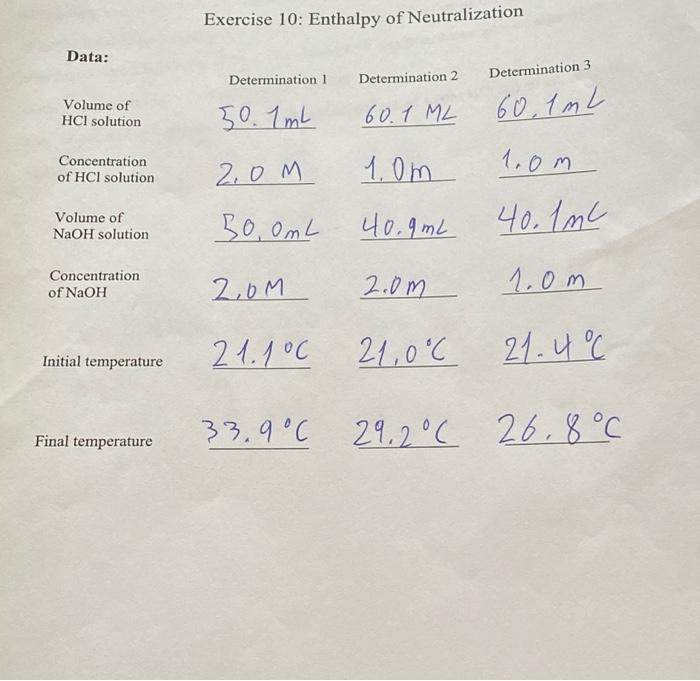 Exercise 10: Enthalpy of Neutralization
Data:
Determination 1 Determination 2 Determination 3
Volume of
HCl solution 50.1mL 60.1 ML 60.1mL
Concentration
of HCl solution 2.0 M 1.0m 1.0 m
Volume of
NaOH solution 50.0mL 40.9mL 40.1mL
Concentration
of NaOH 2.0M 2.0m 1.0 m
Initial temperature 21.1°C 21.0°C 21.4°C
Final temperature 33.9°C 29.2°C 26.8°C